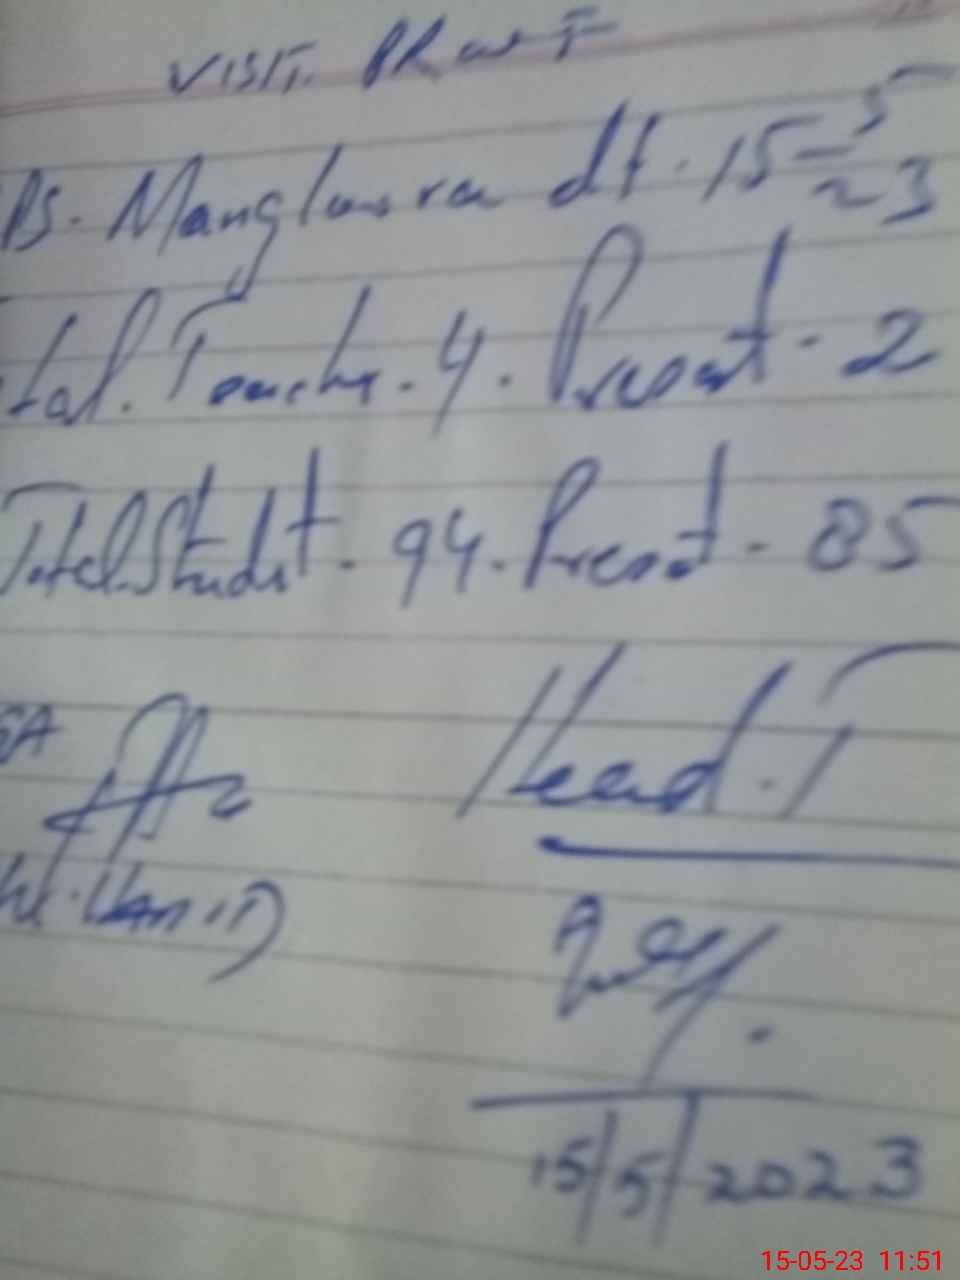 VISIT.
PS. Manglawra dt. 15-5-23
tal. Teache. 4. Present - 2
Total Studt. 94. Present - 85
Head. T
15/5/2023
15-05-23 11:51